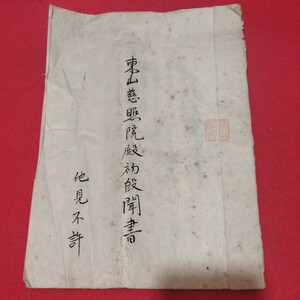 東山慈照院殿初段聞書
他見不許